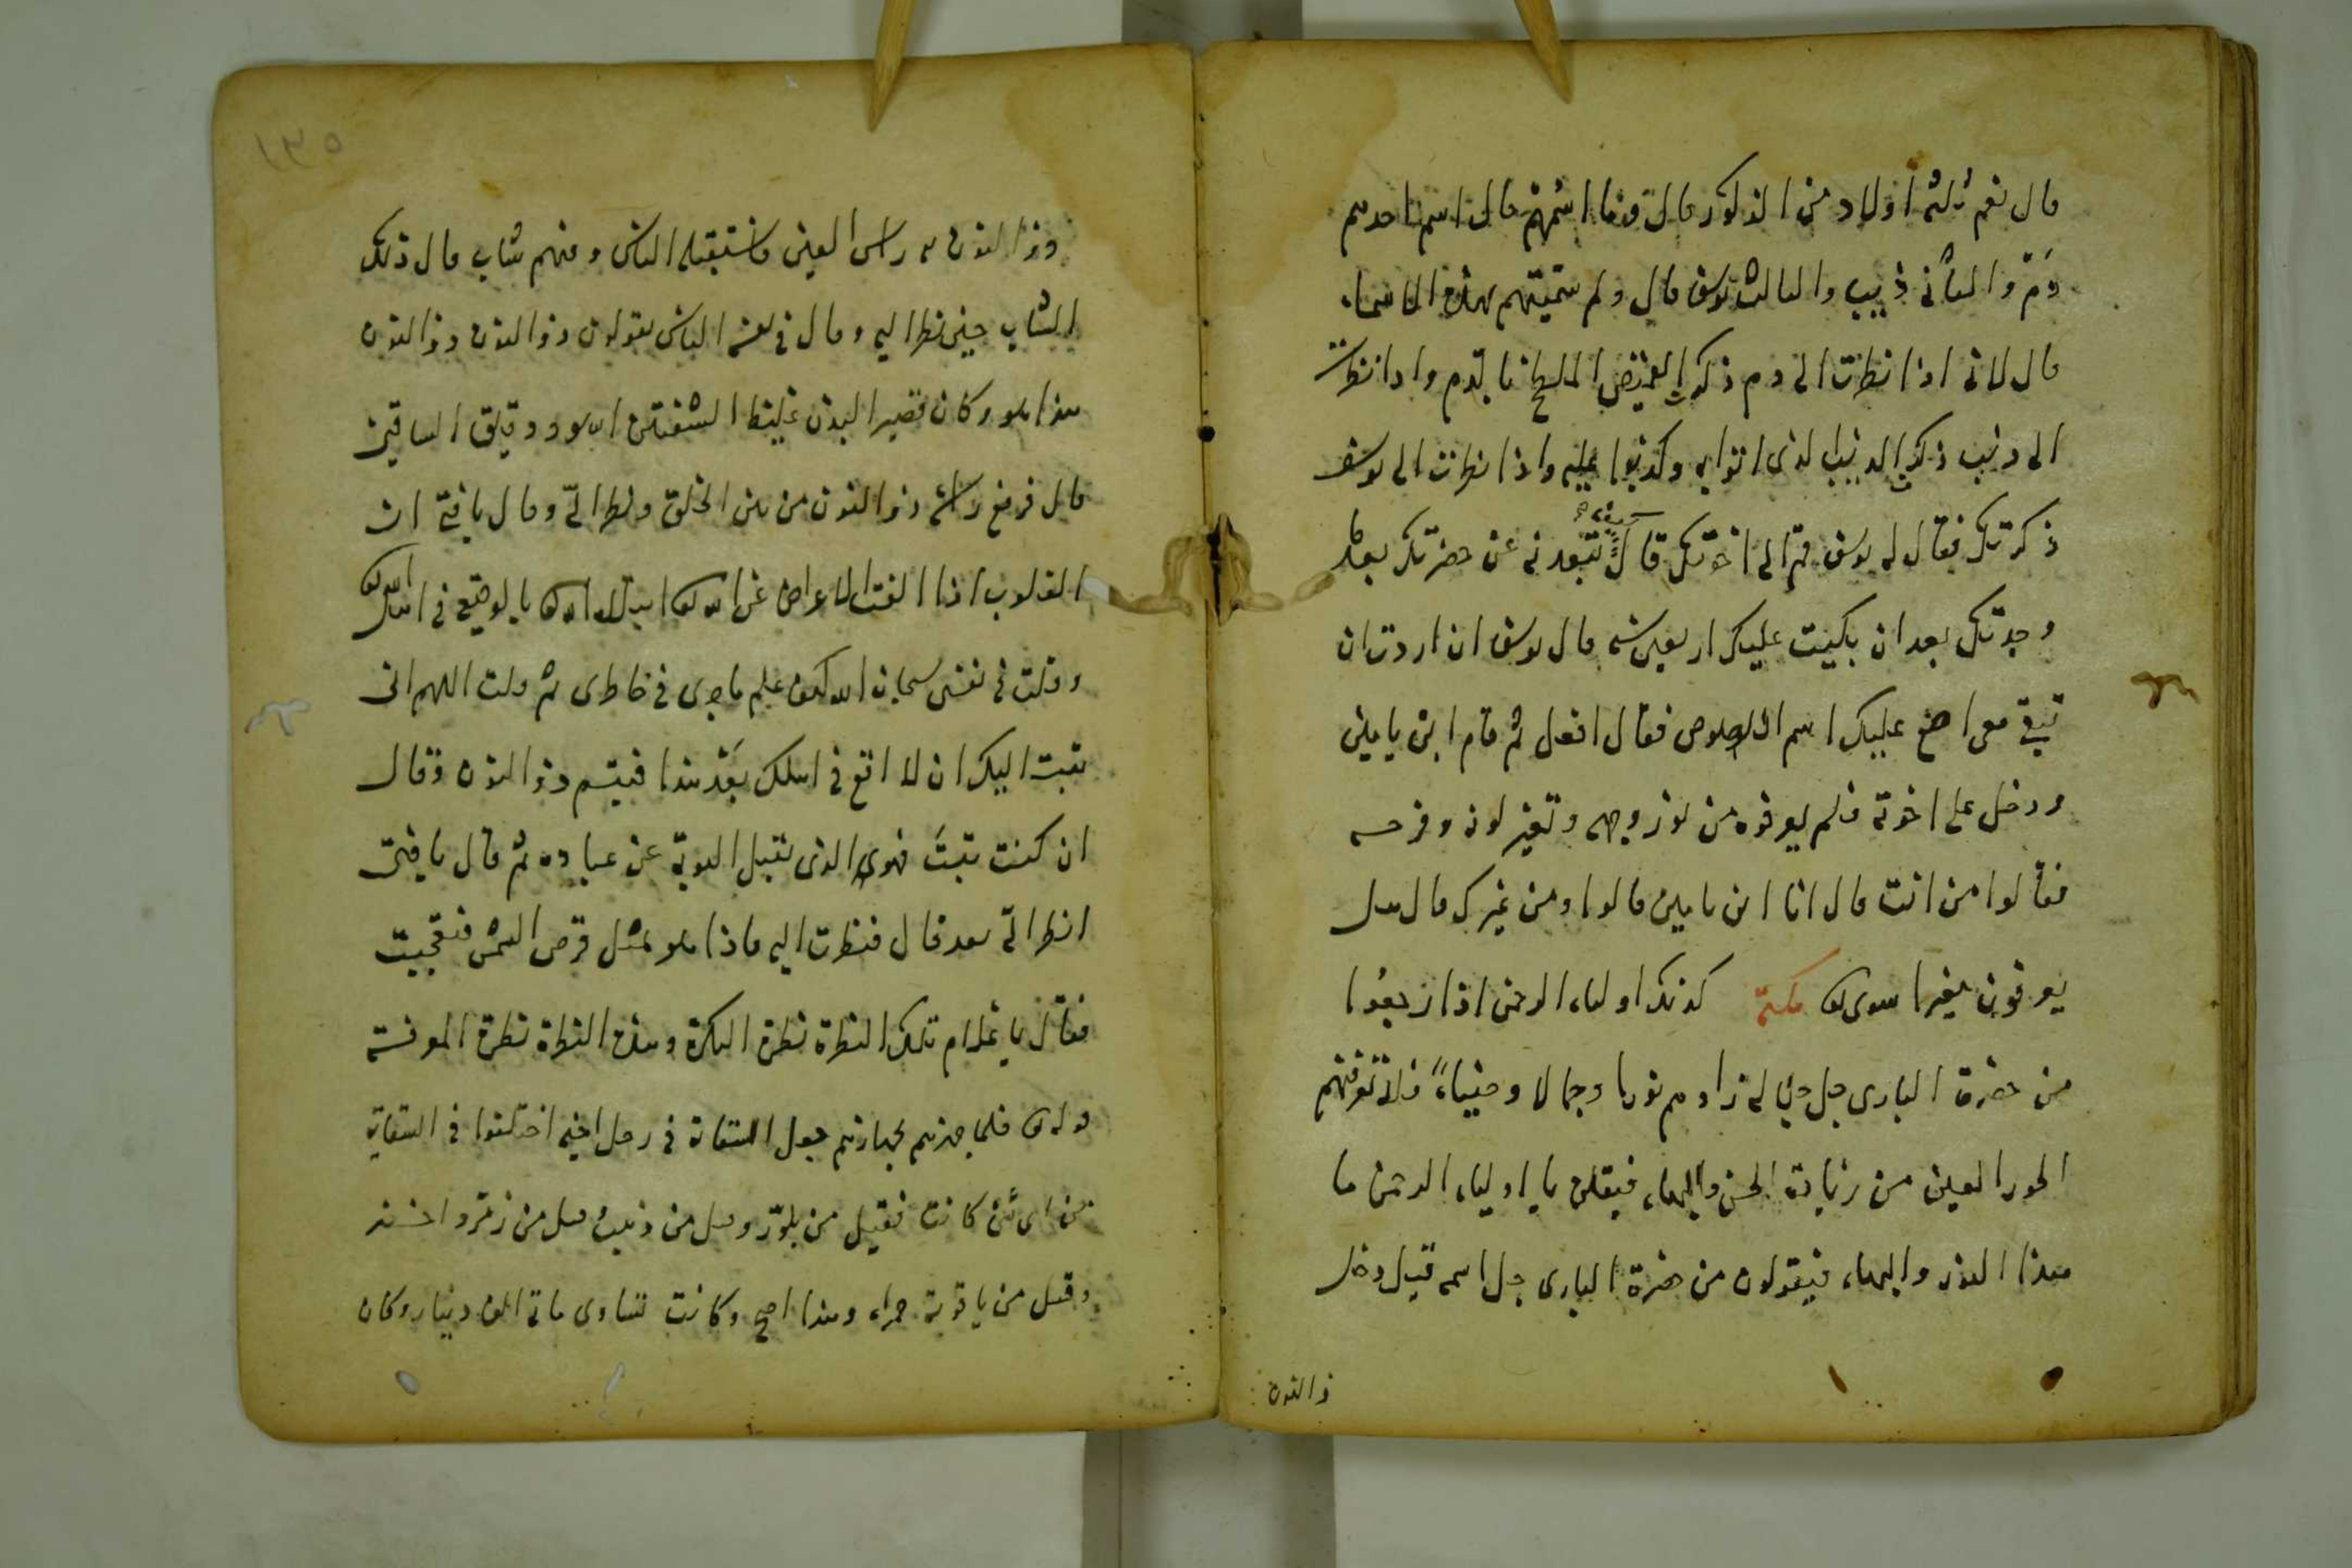 قال نعم ثلثة اولاد من الذكور قال فما اسمهم قال اسم احدهم
دم والثانى ذيب والثالث يوسف قال ولم سميتهم بهذه الاسماء
قال لانى اذا نظرت الى دم ذكرت القميص الملطخ بالدم واذا نظرت
الى ذئب ذكرت الذئب الذى اتوا به وكذبوا عليه واذا نظرت الى يوسف
ذكرتك فقال له يوسف قم الى اخوتك قال تبعدنى عن حضرتك بعد ما
وجدتك بعد ان بكيت عليك اربعين سنه قال يوسف ان اردت ان
تبقى معى اضع عليك اسم اللصوص فقال افعل ثم قام ابن يامين
ودخل على اخوته فلم يعرفوه من نور وجهه وتغير لونه وفرحه
فقالوا من انت قال انا ابن يامين قالوا ومن غيرك قال هل
يعرفون مغيرا سوى الله نكتة كذلك اولياء الرحمن اذا رجعوا
من حضرة البارى جل جلاله زادهم نورا وجمالا وضياء فلا تعرفهم
الحور العين من زيادة الحسن والبهاء فيقلن يا اولياء الرحمن ما
هذا النور والبهاء فيقولون من حضرة البارى جل اسمه قيل دخل
ذا النون
١٣٥
ذو النون راس العين فاستقبله الناس ومنهم شاب قال ذلك
الشاب حين نظر اليه وقال فى نفسه الناس يقولون ذو النون ذو النون
هذا هو وكان قصير البدن غليظ الشفتين اسود دقيق الساقين
قال فرفع راسه ذو النون من بين الخلق ونظر الىّ وقال يا فتى ان
القلوب اذا الفت الاعراض عن الله ابتلاه الله بالوقيع فى اهل الله
وقلت فى نفسى سبحان الله كيف علم ما جرى فى خاطرى ثم قلت اللهم انى
تبت اليك ان لا اقع فى اهلك بعد هذا فتبسم ذو النون وقال
ان كنت تبت فهو الذى يقبل التوبة عن عباده ثم قال يا فتى
انظر الىّ بعد قال فنظرت اليه فاذا هو مثل قرص الشمس فتعجبت
فقال يا غلام تلك النظرة نظرة النكرة وهذه النظرة نظرة المعرفة
قوله فلما جهزهم بجهازهم جعل السقاية فى رحل اخيه اختلفوا فى السقاية
من اى شئ كانت فقيل من بلور وقيل من ذهب وقيل من زمرد اخضر
وقيل من ياقوتة حمراء وهذا اصح وكانت تساوى مائة الف دينار وكان